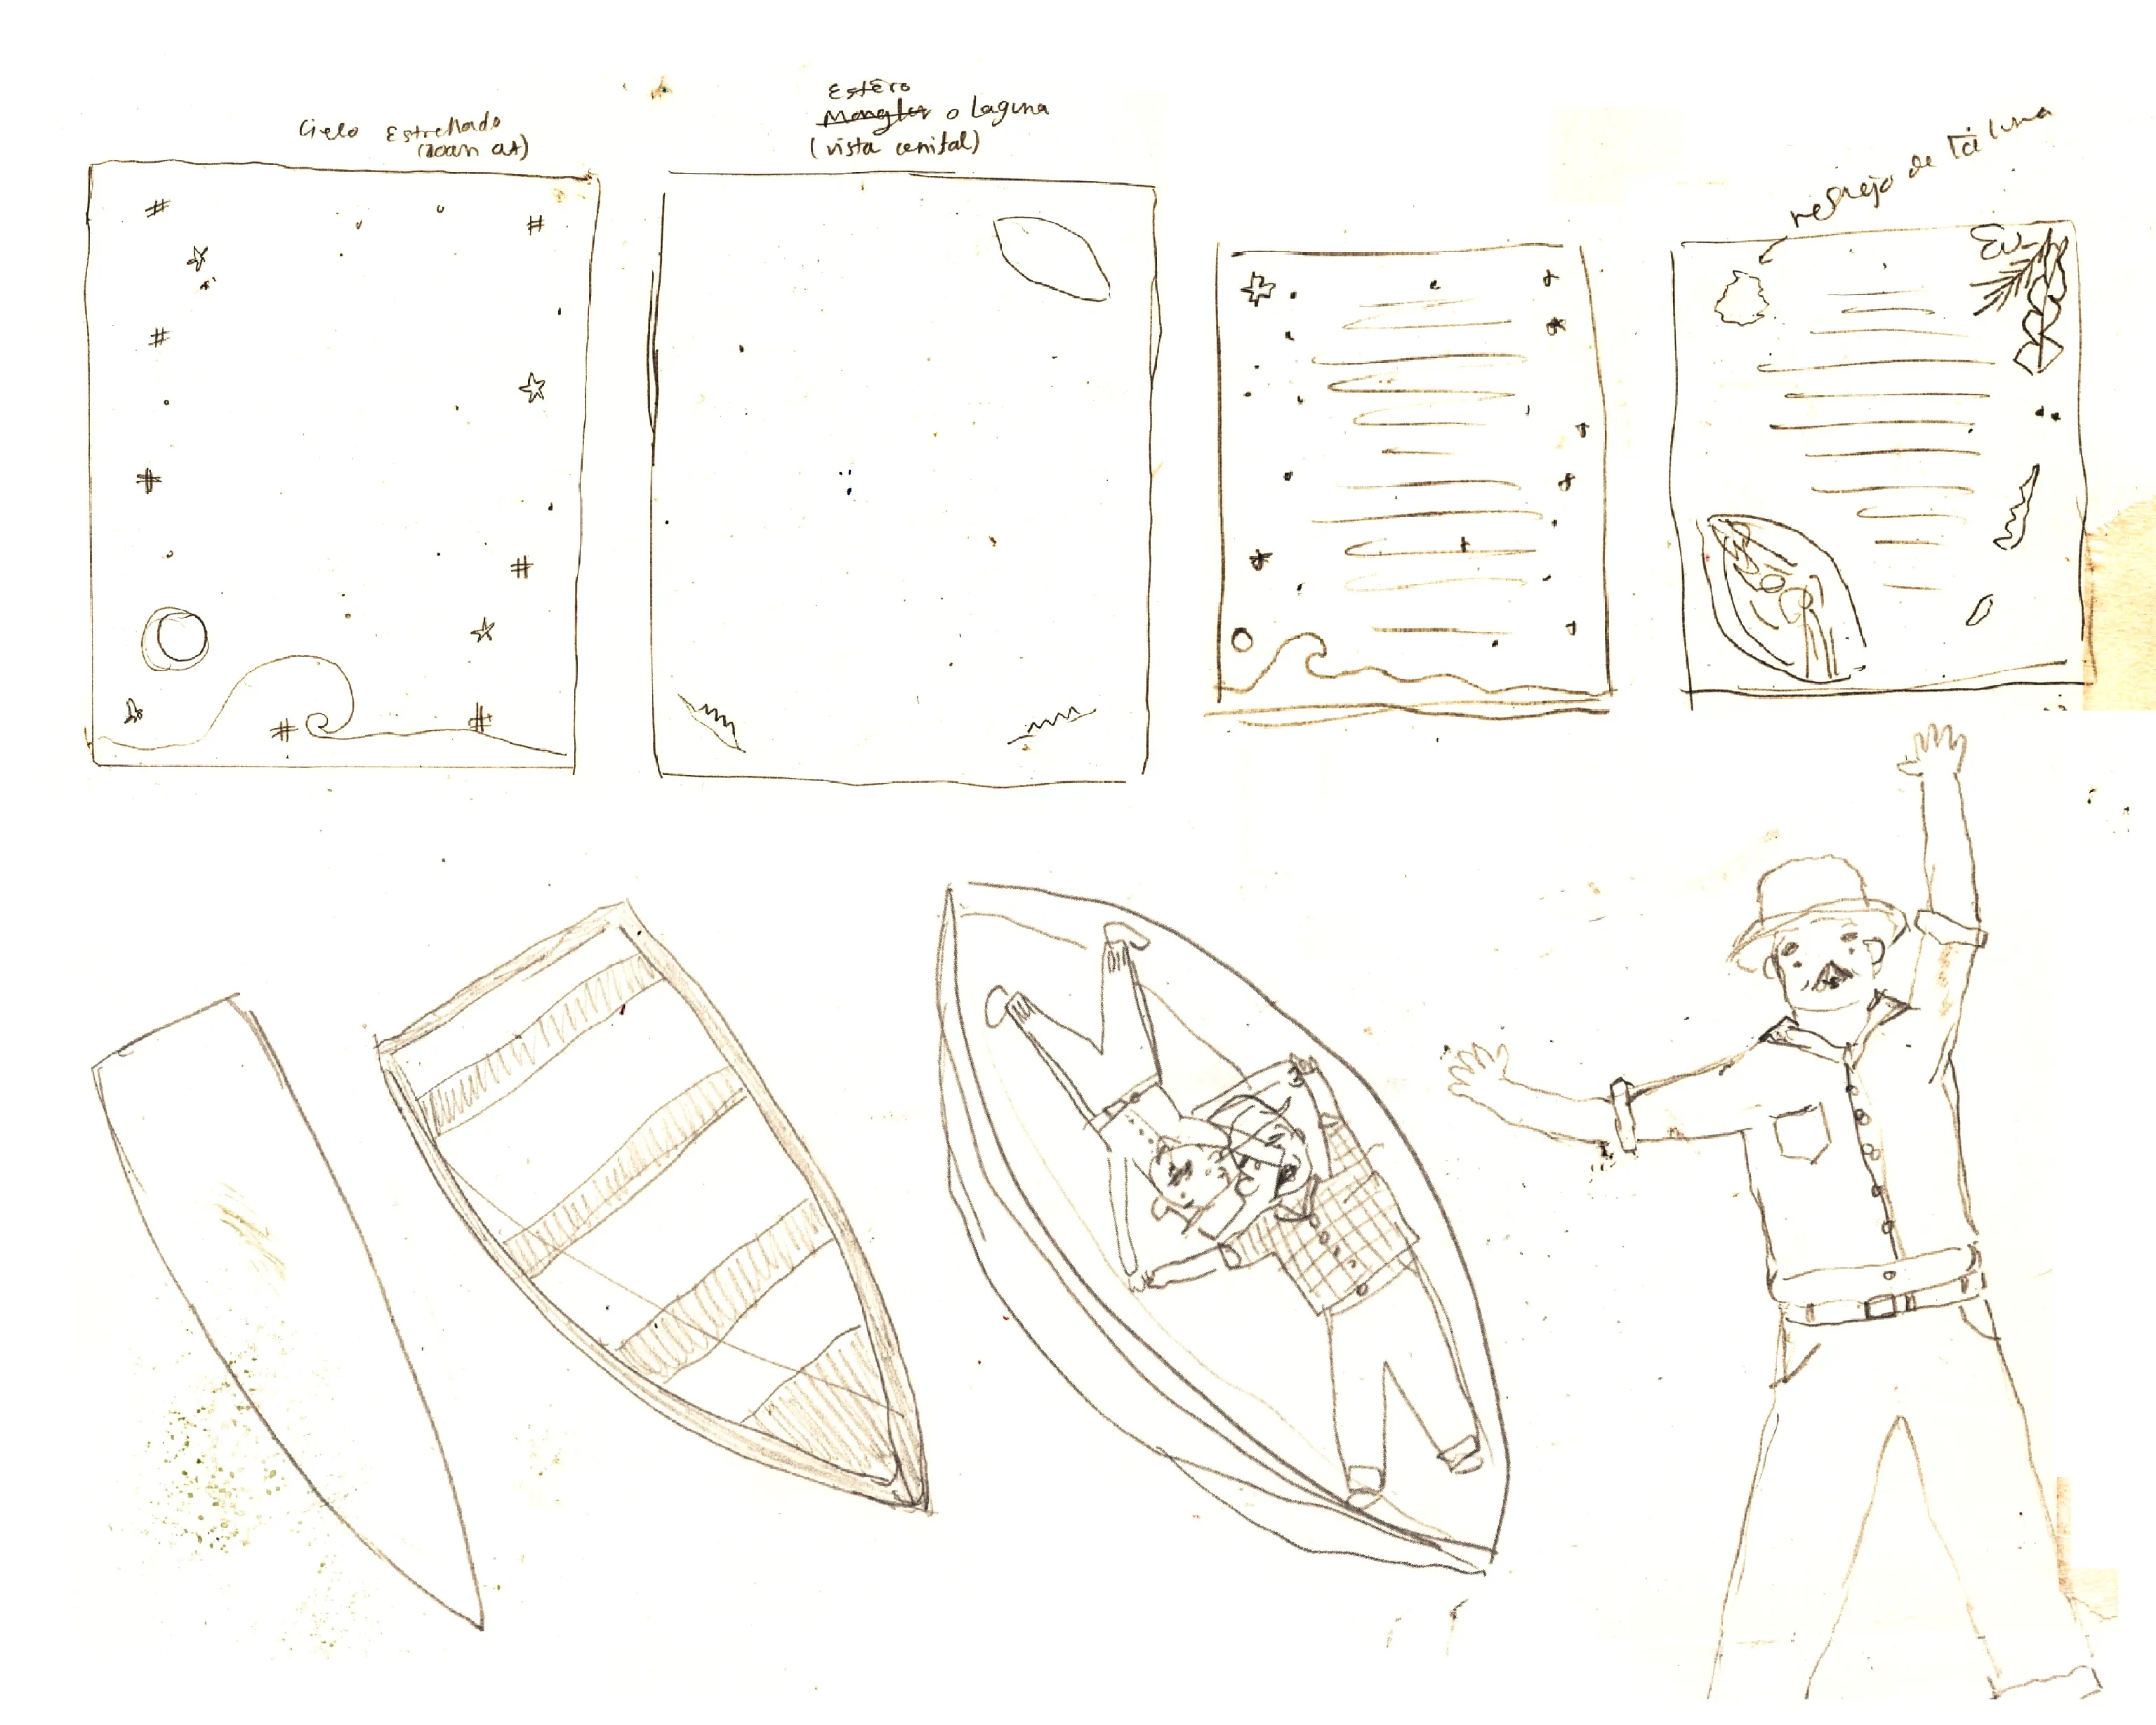 Cielo Estrellado
(zoom out)
Estero
Manglar o Laguna
(vista cenital)
reflejo de la luna